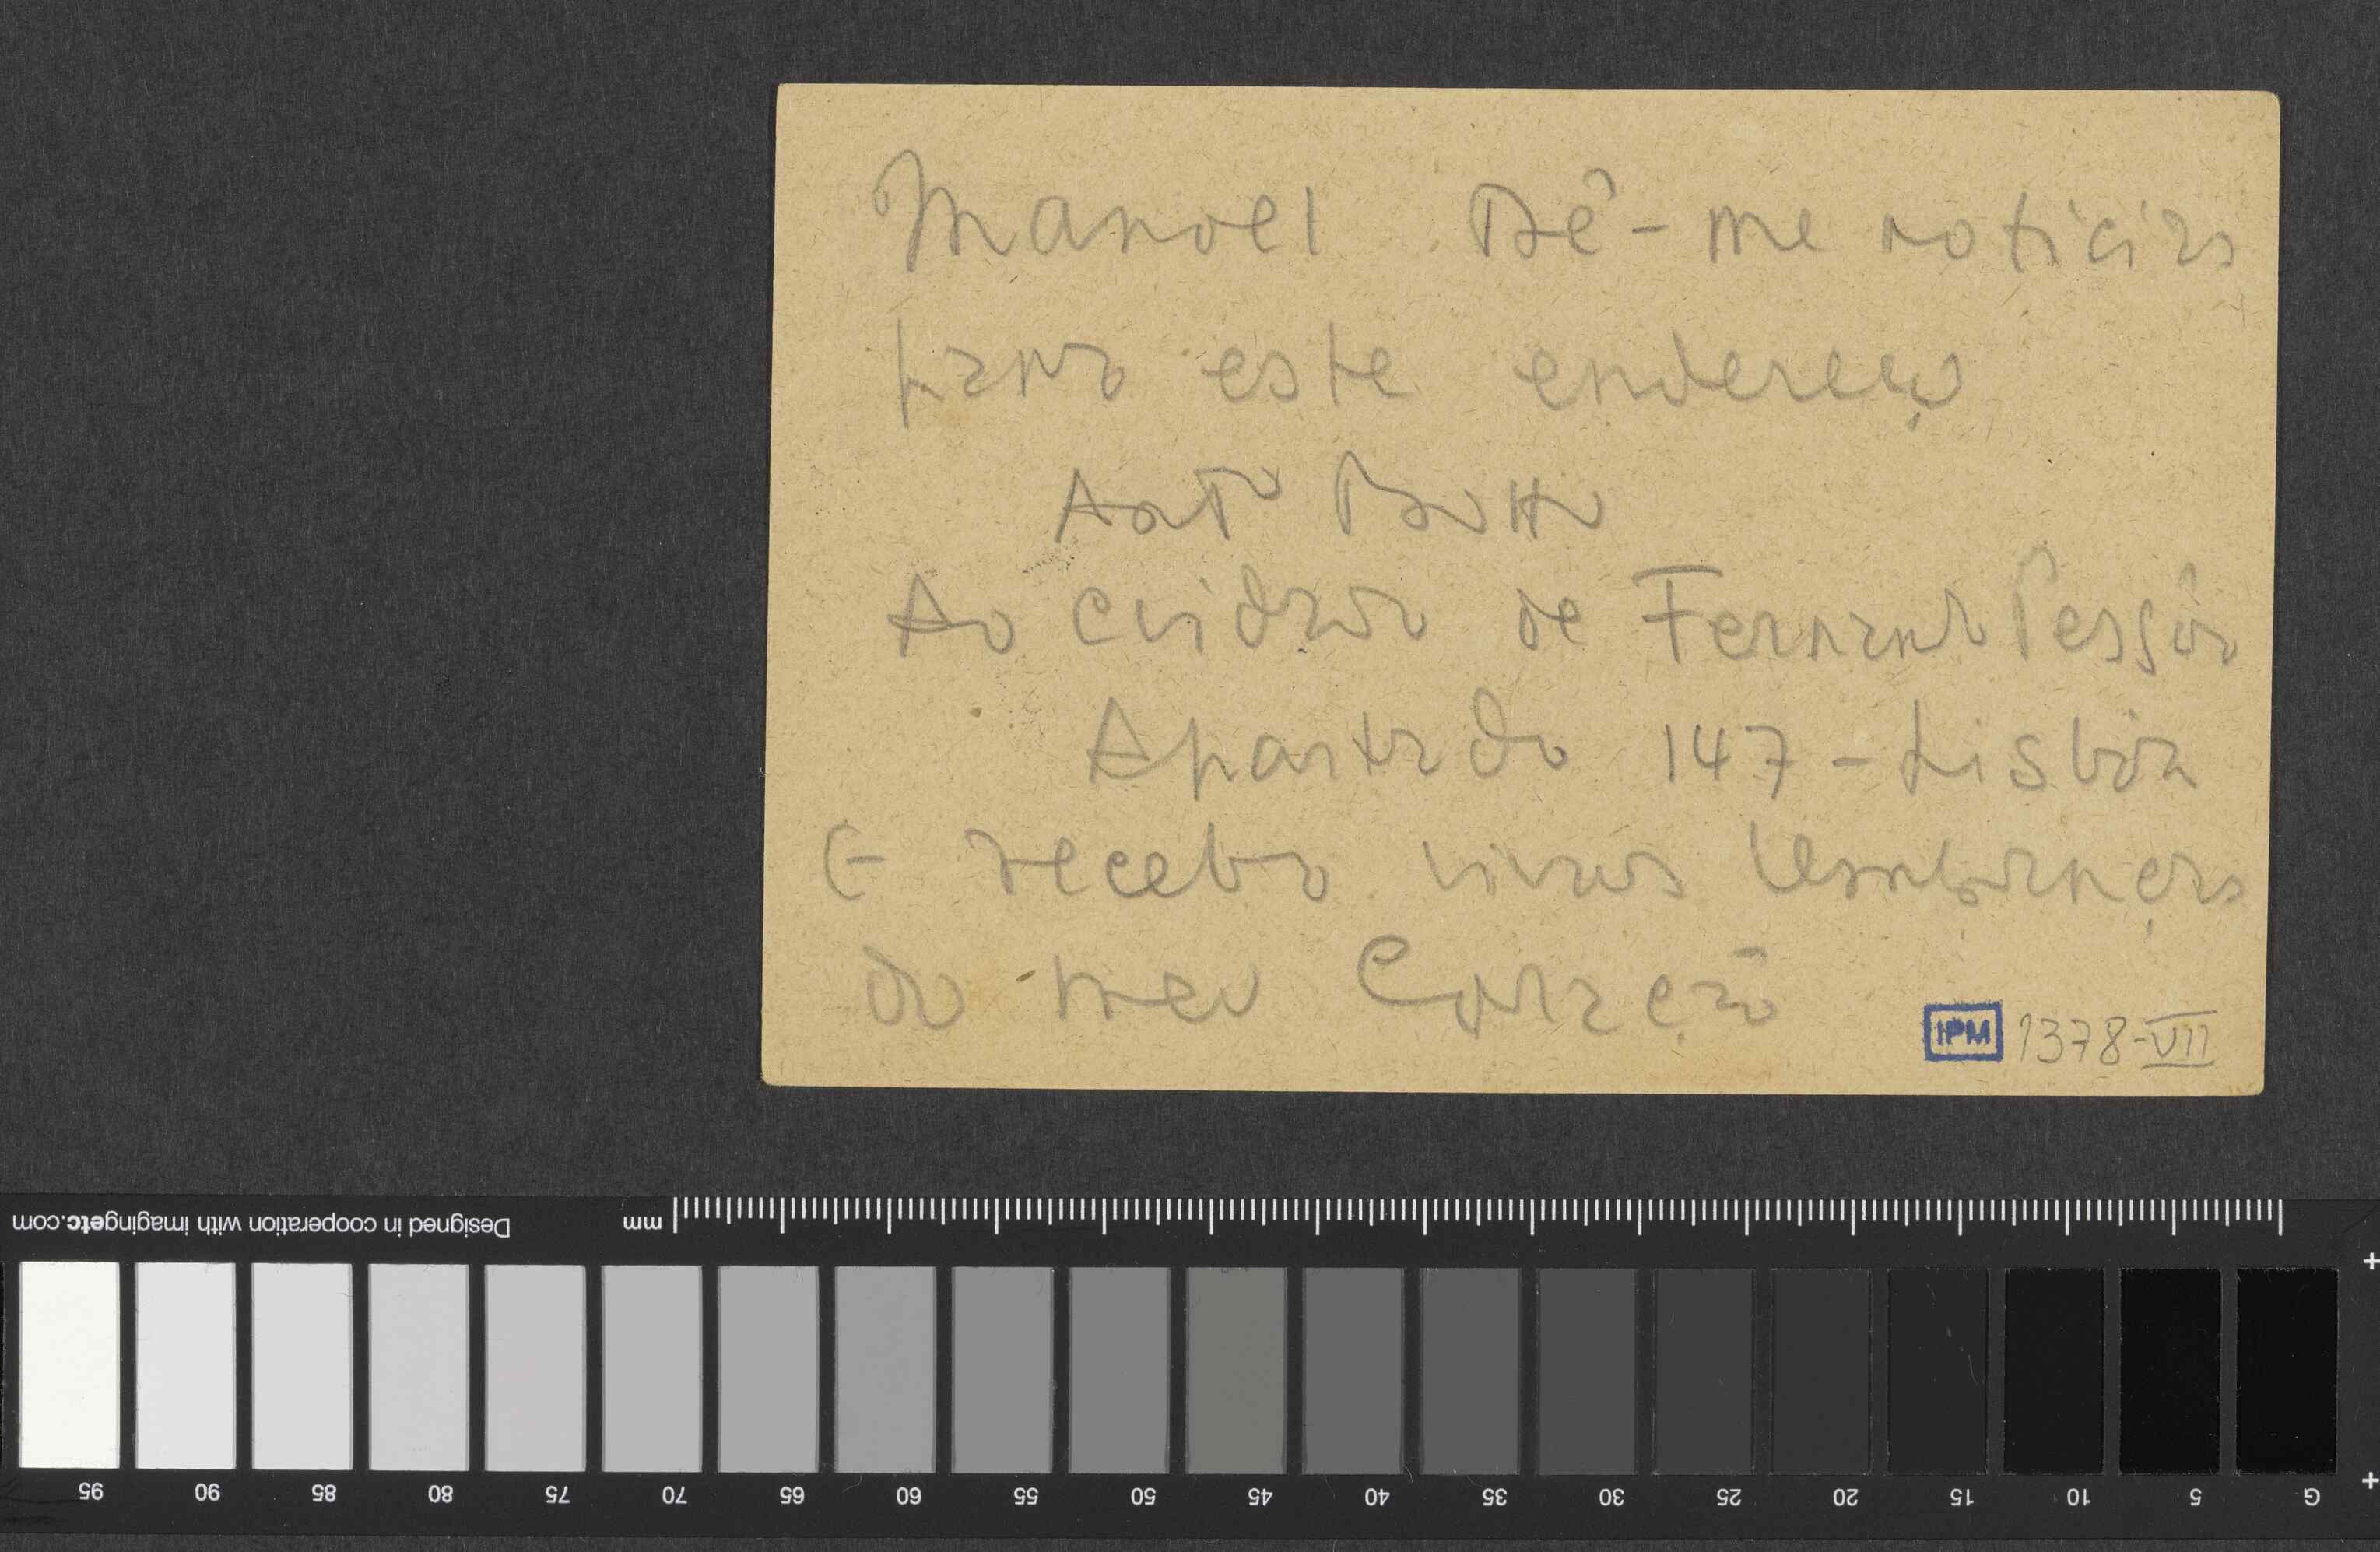 Manoel Dê-me noticias
para este endereço
Antº Botto
Ao cuidado de Fernando Pessôa
Apartado 147 - Lisbôa
E receba vivas lembranças
do meu Coração
IPM 1378-VII
mm
Designed in cooperation with imagingetc.com
95 90 85 80 75 70 65 60 55 50 45 40 35 30 25 20 15 10 5 G